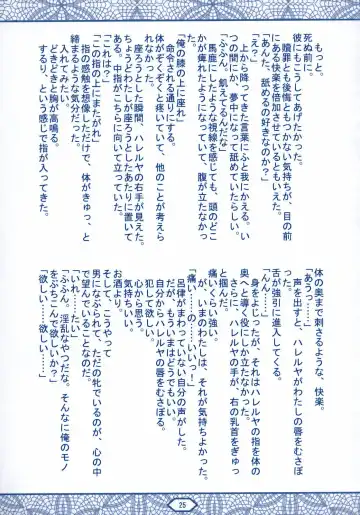 もっと。
死ぬ前に。
彼にもこうしてあげたかった。
贖罪とも後悔ともつかない気持ちが、目の前
にある快楽を倍加させているともいえた。
「あんた、舐めるの好きなのか?」
「え?」
上から降ってきた言葉にふと我にかえる。い
つの間にか、夢中になって舐めていたらしい。
「ふふん。飢えてるんだな」
馬鹿にしたような視線を感じても、頭のどこ
かが痺れたようになっていて、腹が立たなか
った。
「俺の膝の上に座れ」
命令される通りにする。
体がぞくぞくと疼いていて、他のことが考えら
れなかった。
座ろうとした瞬間、ハレルヤの右手が見えた。
ちょうどわたしが座ろうとしたあたりに置いて
ある。中指がこちらに向いて立っていた。
「これは?」
「この指の上にまたがれ」
指の感触を想像しただけで、体がきゅっ、と
締まるような気分だった。
入れてみたい。
どきどきと胸が高鳴る。
するり、という感じで指が入ってきた。
体の奥まで刺さるような、快楽。
「あっ」
声を出すと、ハレルヤがわたしの唇をむさぼ
った。
舌が強引に進入してくる。
「んん……」
身をよじったが、それはハレルヤの指を体の
奥へと導く役にしか立たなかった。
さらに、ハレルヤの手が、右の乳首をぎゅっ
と掴んだ。
痛いくらい強い。
が、いまのわたしは、それが気持ちよかった。
「痛い……の……いいっ…!」
呂律がまわっていない自分の声がした。
だが、もういまはどうでもいい。
自分からハレルヤの唇をむさぼる。
犯して欲しい。
心から思う。
気持ちいい。
お酒より。
そして、こうやって
男になぶられて、ただの牝でいるのが、心の中
で望んでることなのだ。
「いれ……たい」
「ふふん。淫乱なやつだな。そんなに俺のモノ
をぶちこんで欲しいか?」
「欲しい……欲しい……!」
25